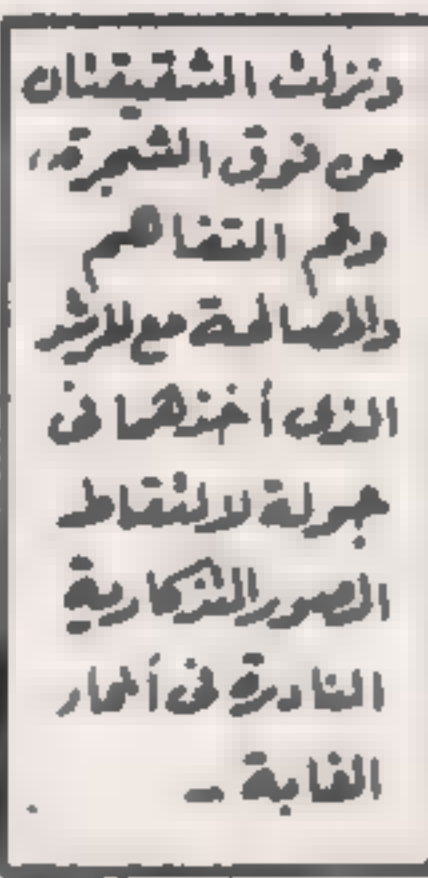 ونزلت الشقيقتان
من فوق الشجرة،
وتم التفاهم
والمصالحة مع المرشد
الذى أخذهما فى
جولة لالتقاط
الصور التذكارية
النادرة فى أغوار
الغابة ــ